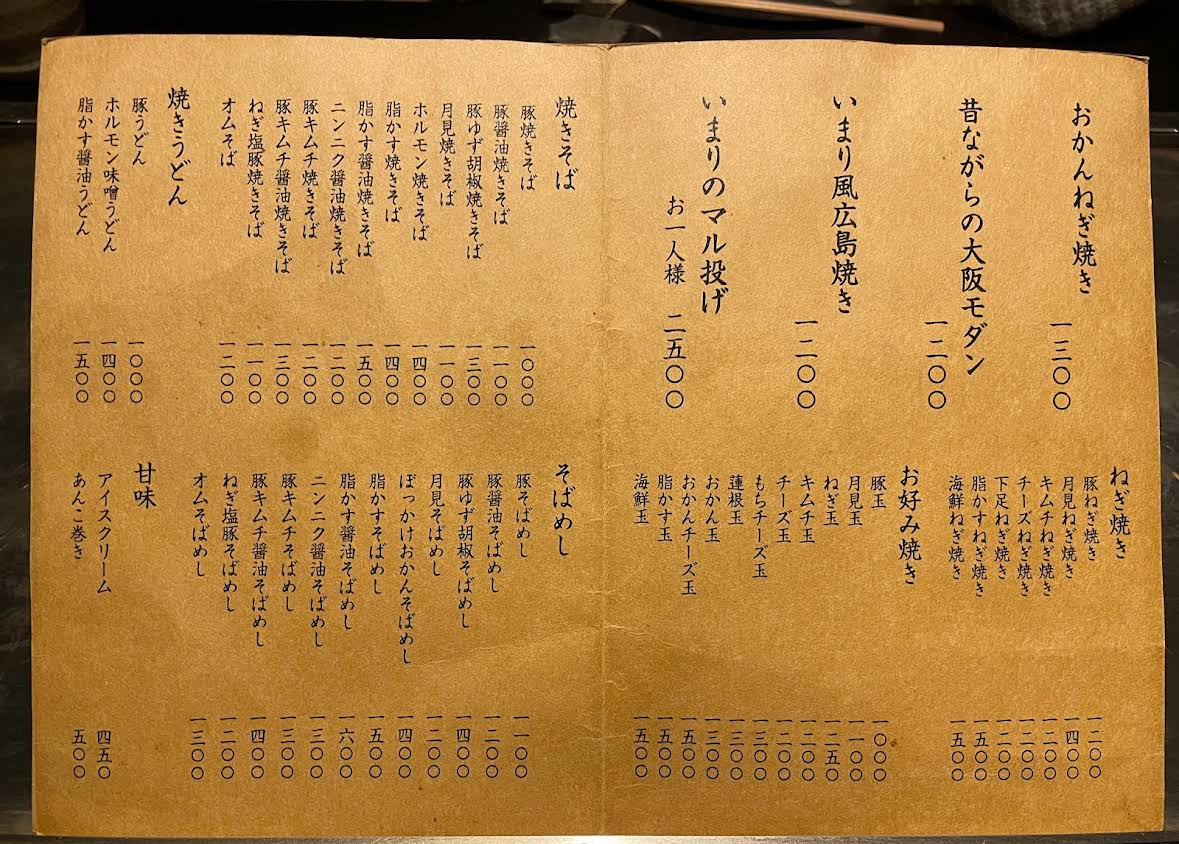 おかんねぎ焼き
一三〇〇
昔ながらの大阪モダン
一二〇〇
いまり風広島焼き
一二〇〇
いまりのマル投げ
お一人様 二五〇〇
ねぎ焼き
豚ねぎ焼き 一二〇〇
月見ねぎ焼き 一四〇〇
キムチねぎ焼き 一二〇〇
チーズねぎ焼き 一二〇〇
下足ねぎ焼き 一二〇〇
脂かすねぎ焼き 一五〇〇
海鮮ねぎ焼き 一五〇〇
お好み焼き
豚玉 一〇〇〇
月見玉 一一〇〇
ねぎ玉 一二五〇
キムチ玉 一二〇〇
チーズ玉 一二〇〇
もちチーズ玉 一三〇〇
蓮根玉 一三〇〇
おかん玉 一三〇〇
おかんチーズ玉 一五〇〇
脂かす玉 一五〇〇
海鮮玉 一五〇〇
焼きそば
豚焼きそば 一〇〇〇
豚醤油焼きそば 一一〇〇
豚ゆず胡椒焼きそば 一三〇〇
月見焼きそば 一一〇〇
ホルモン焼きそば 一四〇〇
脂かす焼きそば 一四〇〇
脂かす醤油焼きそば 一五〇〇
ニンニク醤油焼きそば 一二〇〇
豚キムチ焼きそば 一二〇〇
豚キムチ醤油焼きそば 一三〇〇
ねぎ塩豚焼きそば 一一〇〇
オムそば 一二〇〇
焼きうどん
豚うどん 一〇〇〇
ホルモン味噌うどん 一四〇〇
脂かす醤油うどん 一五〇〇
そばめし
豚そばめし 一一〇〇
豚醤油そばめし 一二〇〇
豚ゆず胡椒そばめし 一四〇〇
月見そばめし 一二〇〇
ぼっかけおかんそばめし 一四〇〇
脂かすそばめし 一五〇〇
脂かす醤油そばめし 一六〇〇
ニンニク醤油そばめし 一三〇〇
豚キムチそばめし 一三〇〇
豚キムチ醤油そばめし 一四〇〇
ねぎ塩豚そばめし 一二〇〇
オムそばめし 一三〇〇
甘味
アイスクリーム 四五〇
あんこ巻き 五〇〇